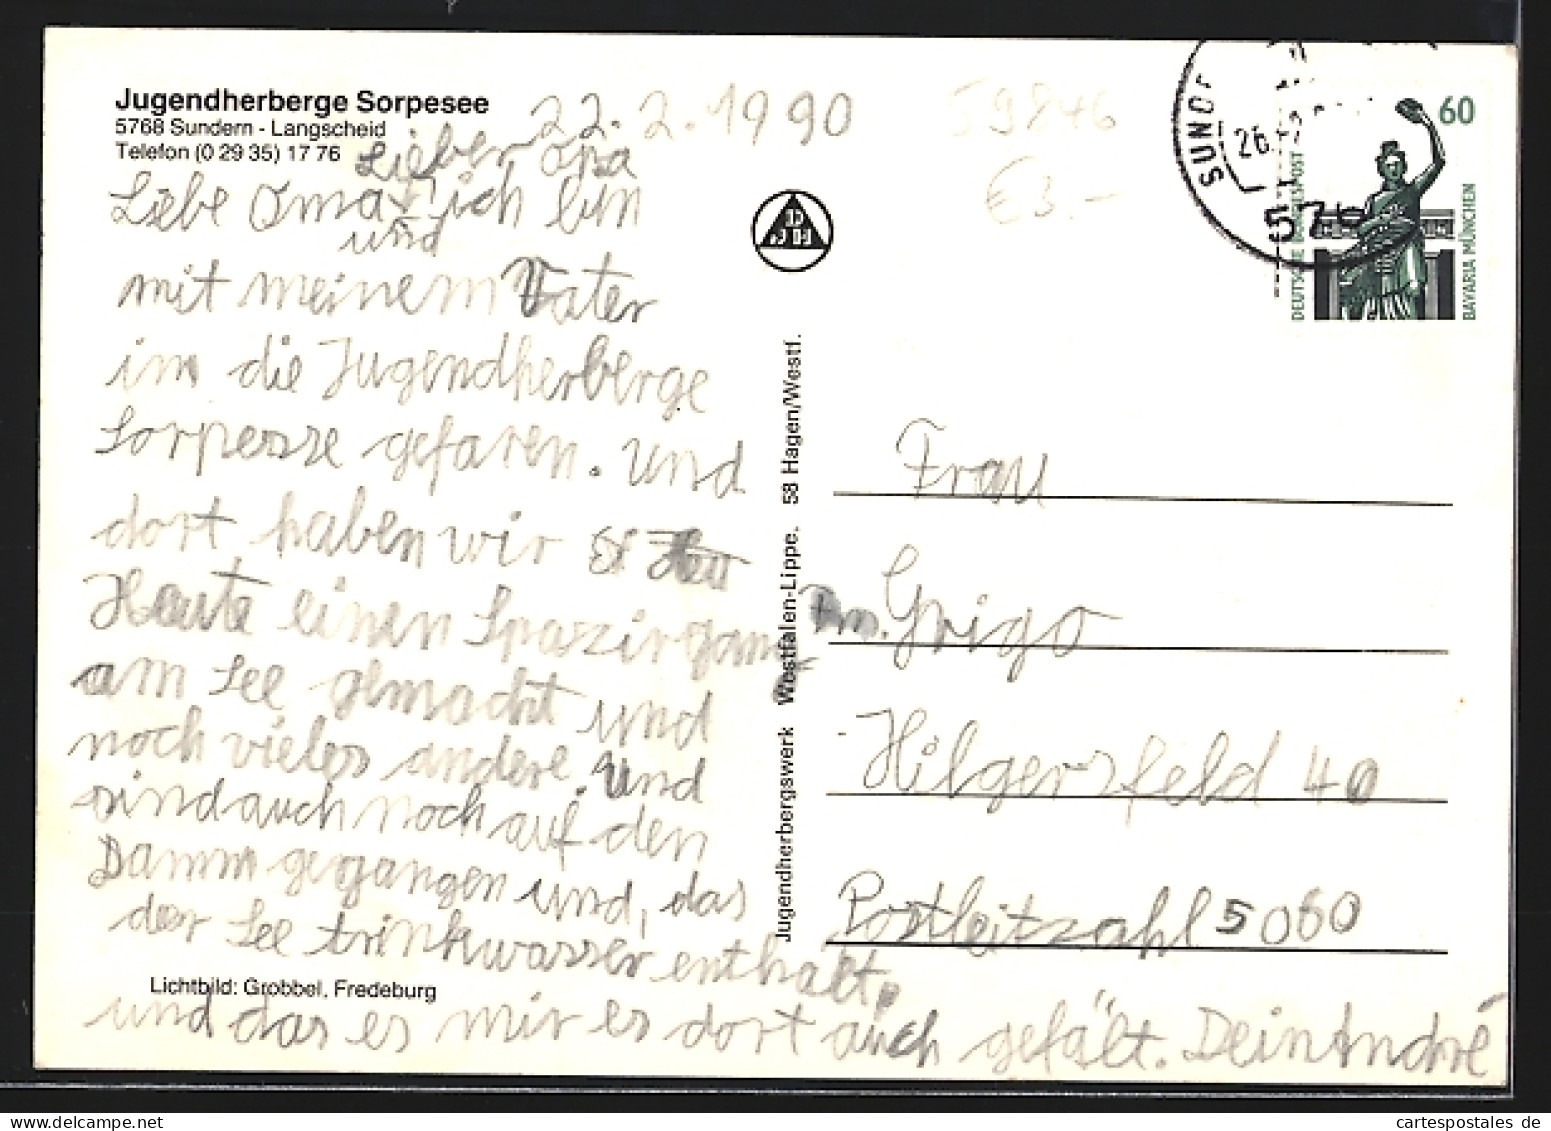 Jugendherberge Sorpesee
5768 Sundern - Langscheid
Telefon (0 29 35) 17 76
22.2.1990
59846
€3.-
Lieber Opa
Liebe Oma ich bin
und
mit meinem Vater
im die Jugendherberge
Sorpesse gefaren. Und
dort haben wir
Heute einen Spazirgang
am See gemacht und
noch vieles andere. Und
sind auch noch auf den
Damm gegangen und, das
der See trinkwasser enthalt,
und das es mir es dort auch gefält. Dein André
Lichtbild: Grobbel, Fredeburg
Jugendherbergswerk Westfalen-Lippe. 58 Hagen/Westf.
SUNDE
26.
576
60
DEUTSCHE BUNDESPOST
BAVARIA MÜNCHEN
Frau
Grigo
Hilgersfeld 40
Postleitzahl 5060
www.cartespostales.de